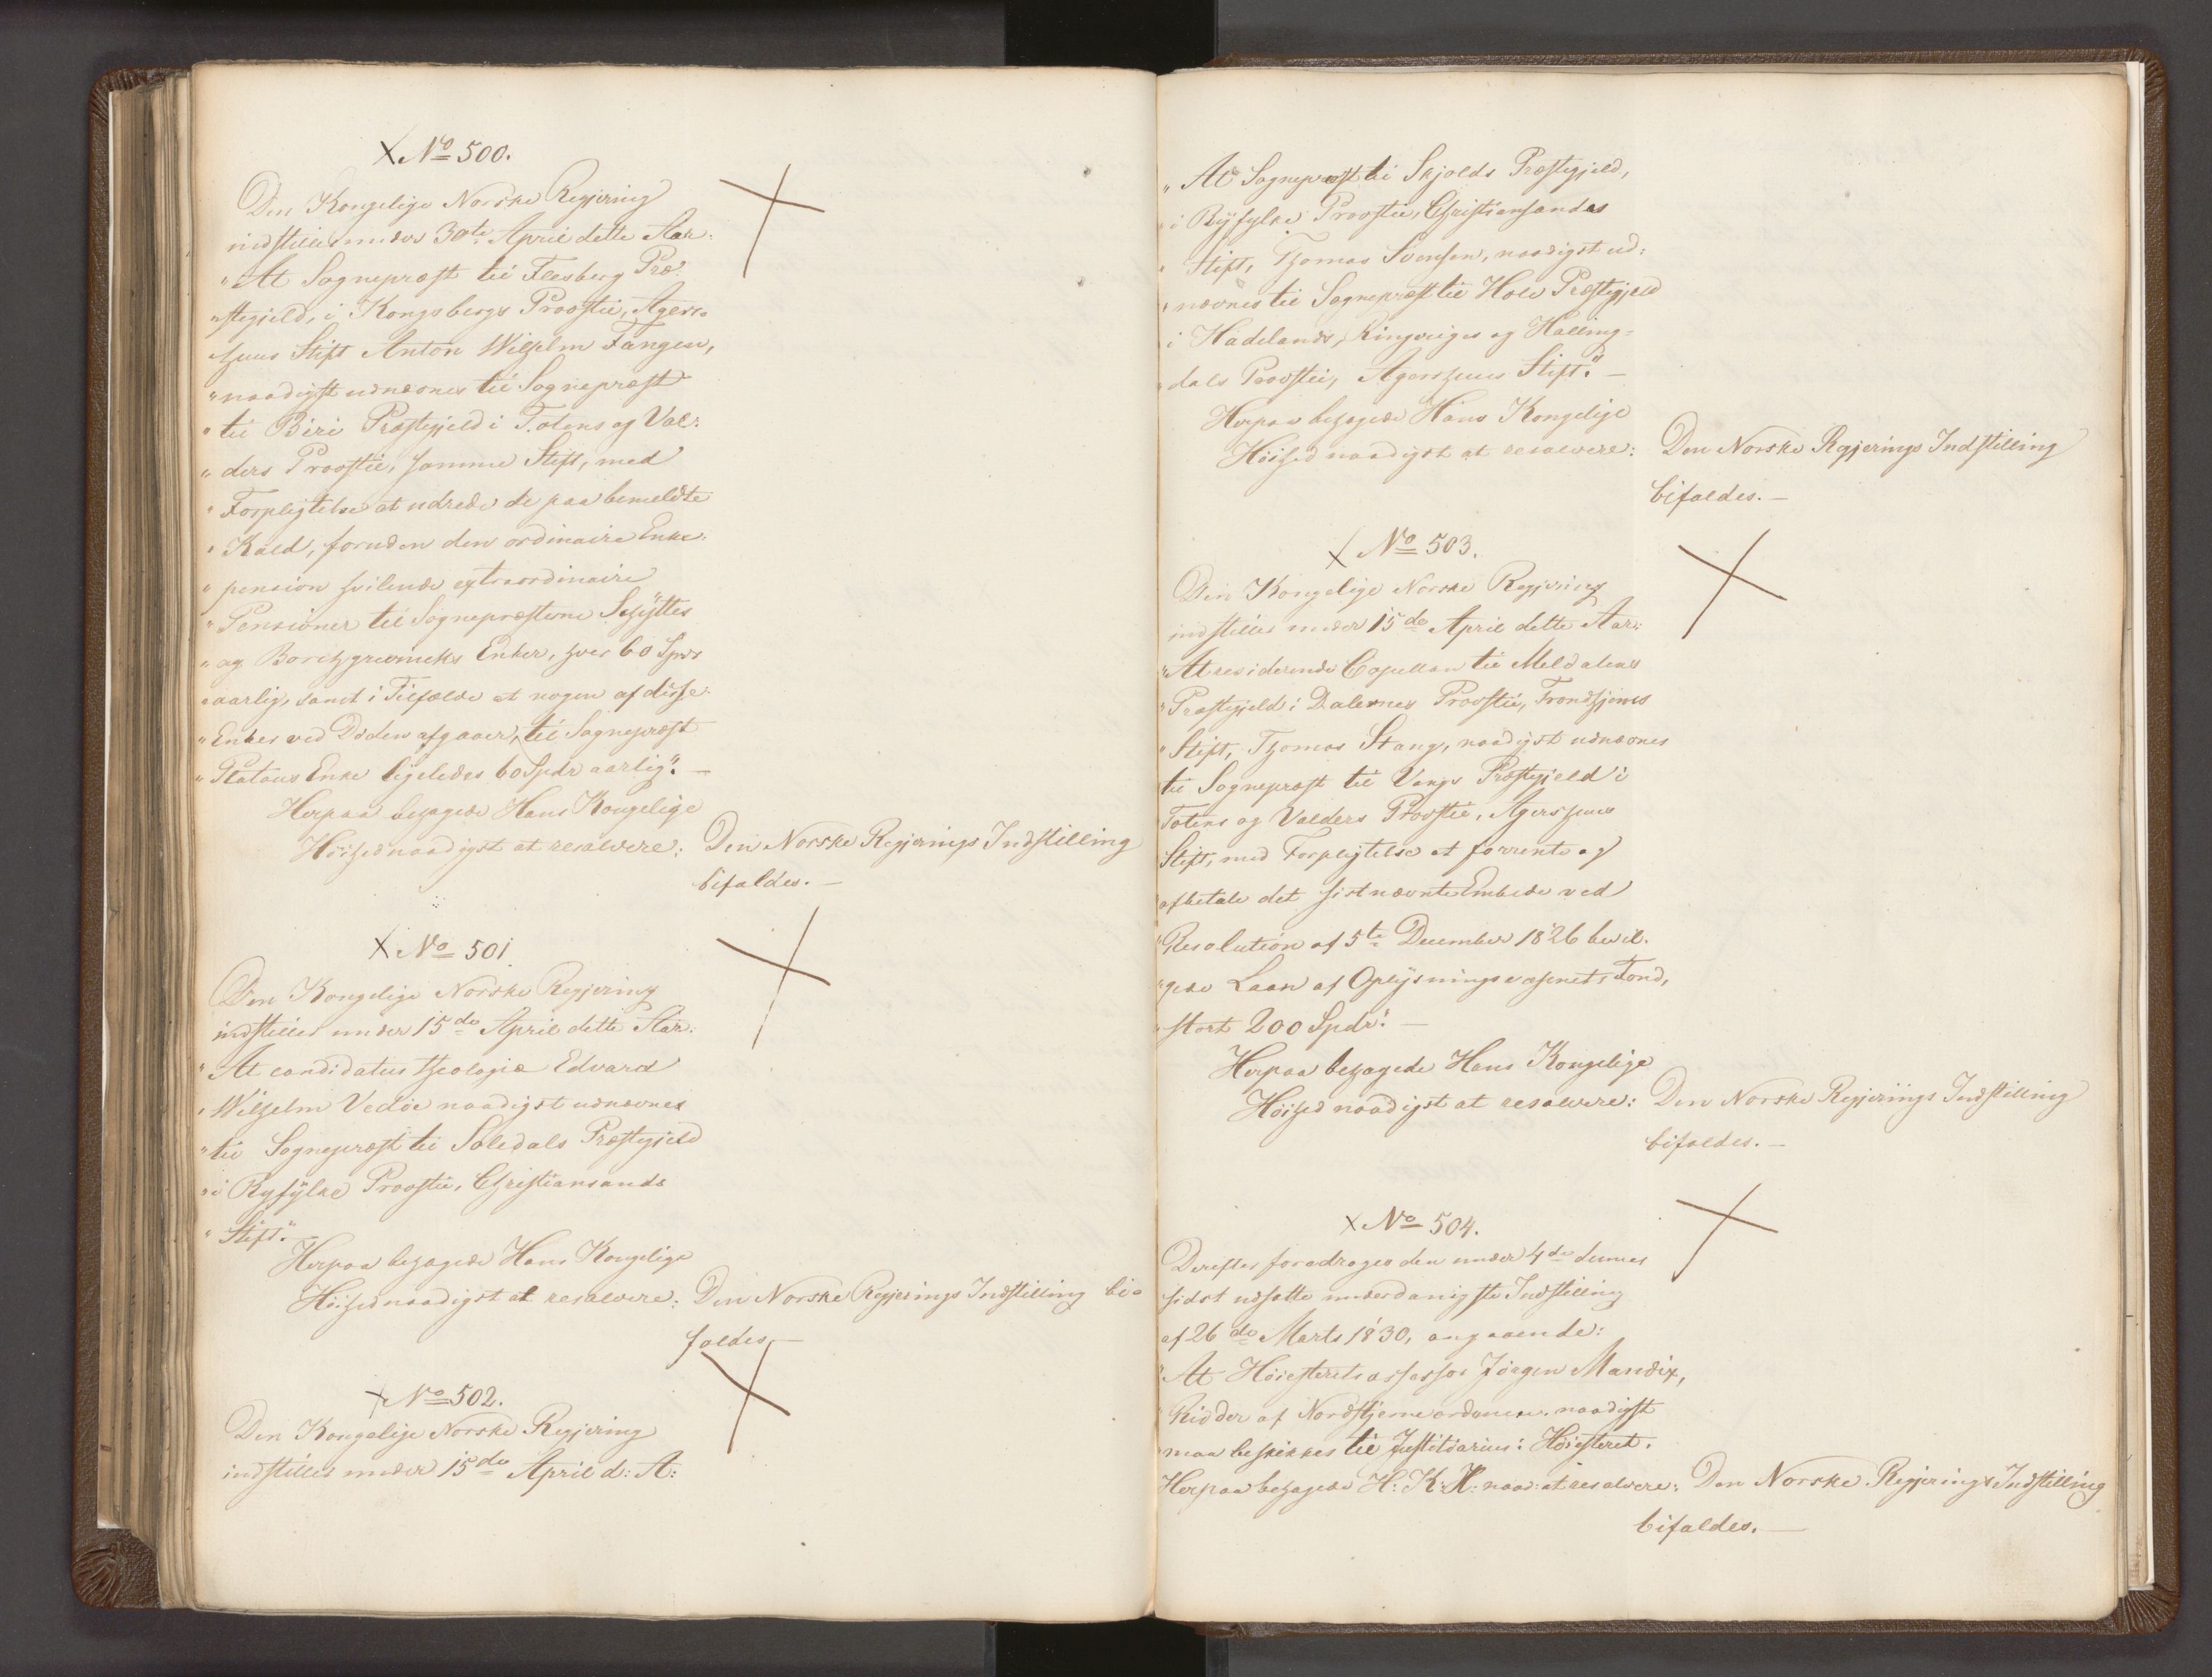 X No 500.
Den Kongelige Norske Regjering
indstiller under 30te April dette Aar:
"At Sognepræst til Flesberg Præ-
"stegjeld, i Kongsbergs Proostie, Agers-
huus Stift Anton Wilhelm Fangen,
"naadigst udnævnes til Sognepræst
"til Biri Præstegjeld i Totens og Val-
"ders Proostie, samme Stift, med
"Forpligtelse at udrede de paa bemeldte
"Kald, foruden den ordinaire Enke-
"pension hvilende extraordinaire
"Pensioner til Sognepræsterne Schÿttes
"og Borchgrevincks Enker, hver 60 Spdr
"aarlig, samt i Tilfælde at nogen af disse
"Enker ved Døden afgaaer, til Sognepræst
"Platous Enke ligeledes 60 Spdr aarlig". —
Herpaa behagede Hans Kongelige
Höihed naadigst at resolvere: Den Norske Regjerings Indstilling
bifaldes. —
X No 501
Den Kongelige Norske Regjering
indstiller under 15de April dette Aar:
"At candidatus theologiæ Edvard
"Wilhelm Vedöe naadigst udnævnes
"til Sognepræst til Soledals Præstegjeld
"i Ryfÿlke Proostie, Christiansands
"Stift." —
Herpaa behagede Hans Kongelige
Höihed naadigst at resolvere: Den Norske Regjerings Indstilling bi-
faldes. —
X No 502.
Den Kongelige Norske Regjering
indstiller under 15de April d: A:
"At Sognepræst til Skjolds Præstegjeld,
"i Rÿfylke Proostie, Christiansands
"Stift, Thomas Svensen, naadigst ud-
"nævnes til Sognepræst til Hole Præstegjeld
"i Hadelands, Ringeriges og Halling-
"dals Proostie, Agershuus Stift." —
Herpaa behagede Hans Kongelige
Höihed naadigst at resolvere: Den Norske Regjerings Indstilling
bifaldes. —
X No 503.
Den Kongelige Norske Regjering
indstiller under 15de April dette Aar:
"At residerende Capellan til Meldalens
"Præstegjeld i Dalernes Proostie, Trondhjems
"Stift, Thomas Stang, naadigst udnævnes
til Sognepræst til Vangs Præstegjeld i
Totens og Valders Proostie, Agershuus
Stift, med Forpligtelse at forrente og
afbetale det sistnævnte Embede ved
"Resolution af 5te December 1826 bevil-
"gede Laan af Oplysningsvæsenets Fond,
"stort 200 Spdr." —
Herpaa behagede Hans Kongelige
Höihed naadigst at resolvere: Den Norske Regjerings Indstilling
bifaldes. —
X No 504.
Derefter foredroges den under 4de dennes
sidst udsatte underdanigste Indstilling
af 26de Marts 1830, angaaende:
"At Höiesteretsassessor Jörgen Mandix,
Ridder af Nordstjerneordenen, naadigst
maa beskikkes til Justitiarius i Höiesteret.
Herpaa behagede H: K: H: naad: at resolvere: Den Norske Regjerings Indstilling
bifaldes. —